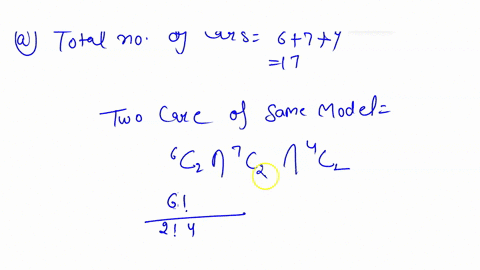 (a) Total no. of cars = 6+7+4
=17
Two Care of Same Model =
⁶C₂ ∩ ⁷C₂ ∩ ⁴C₂
6!
2! 4